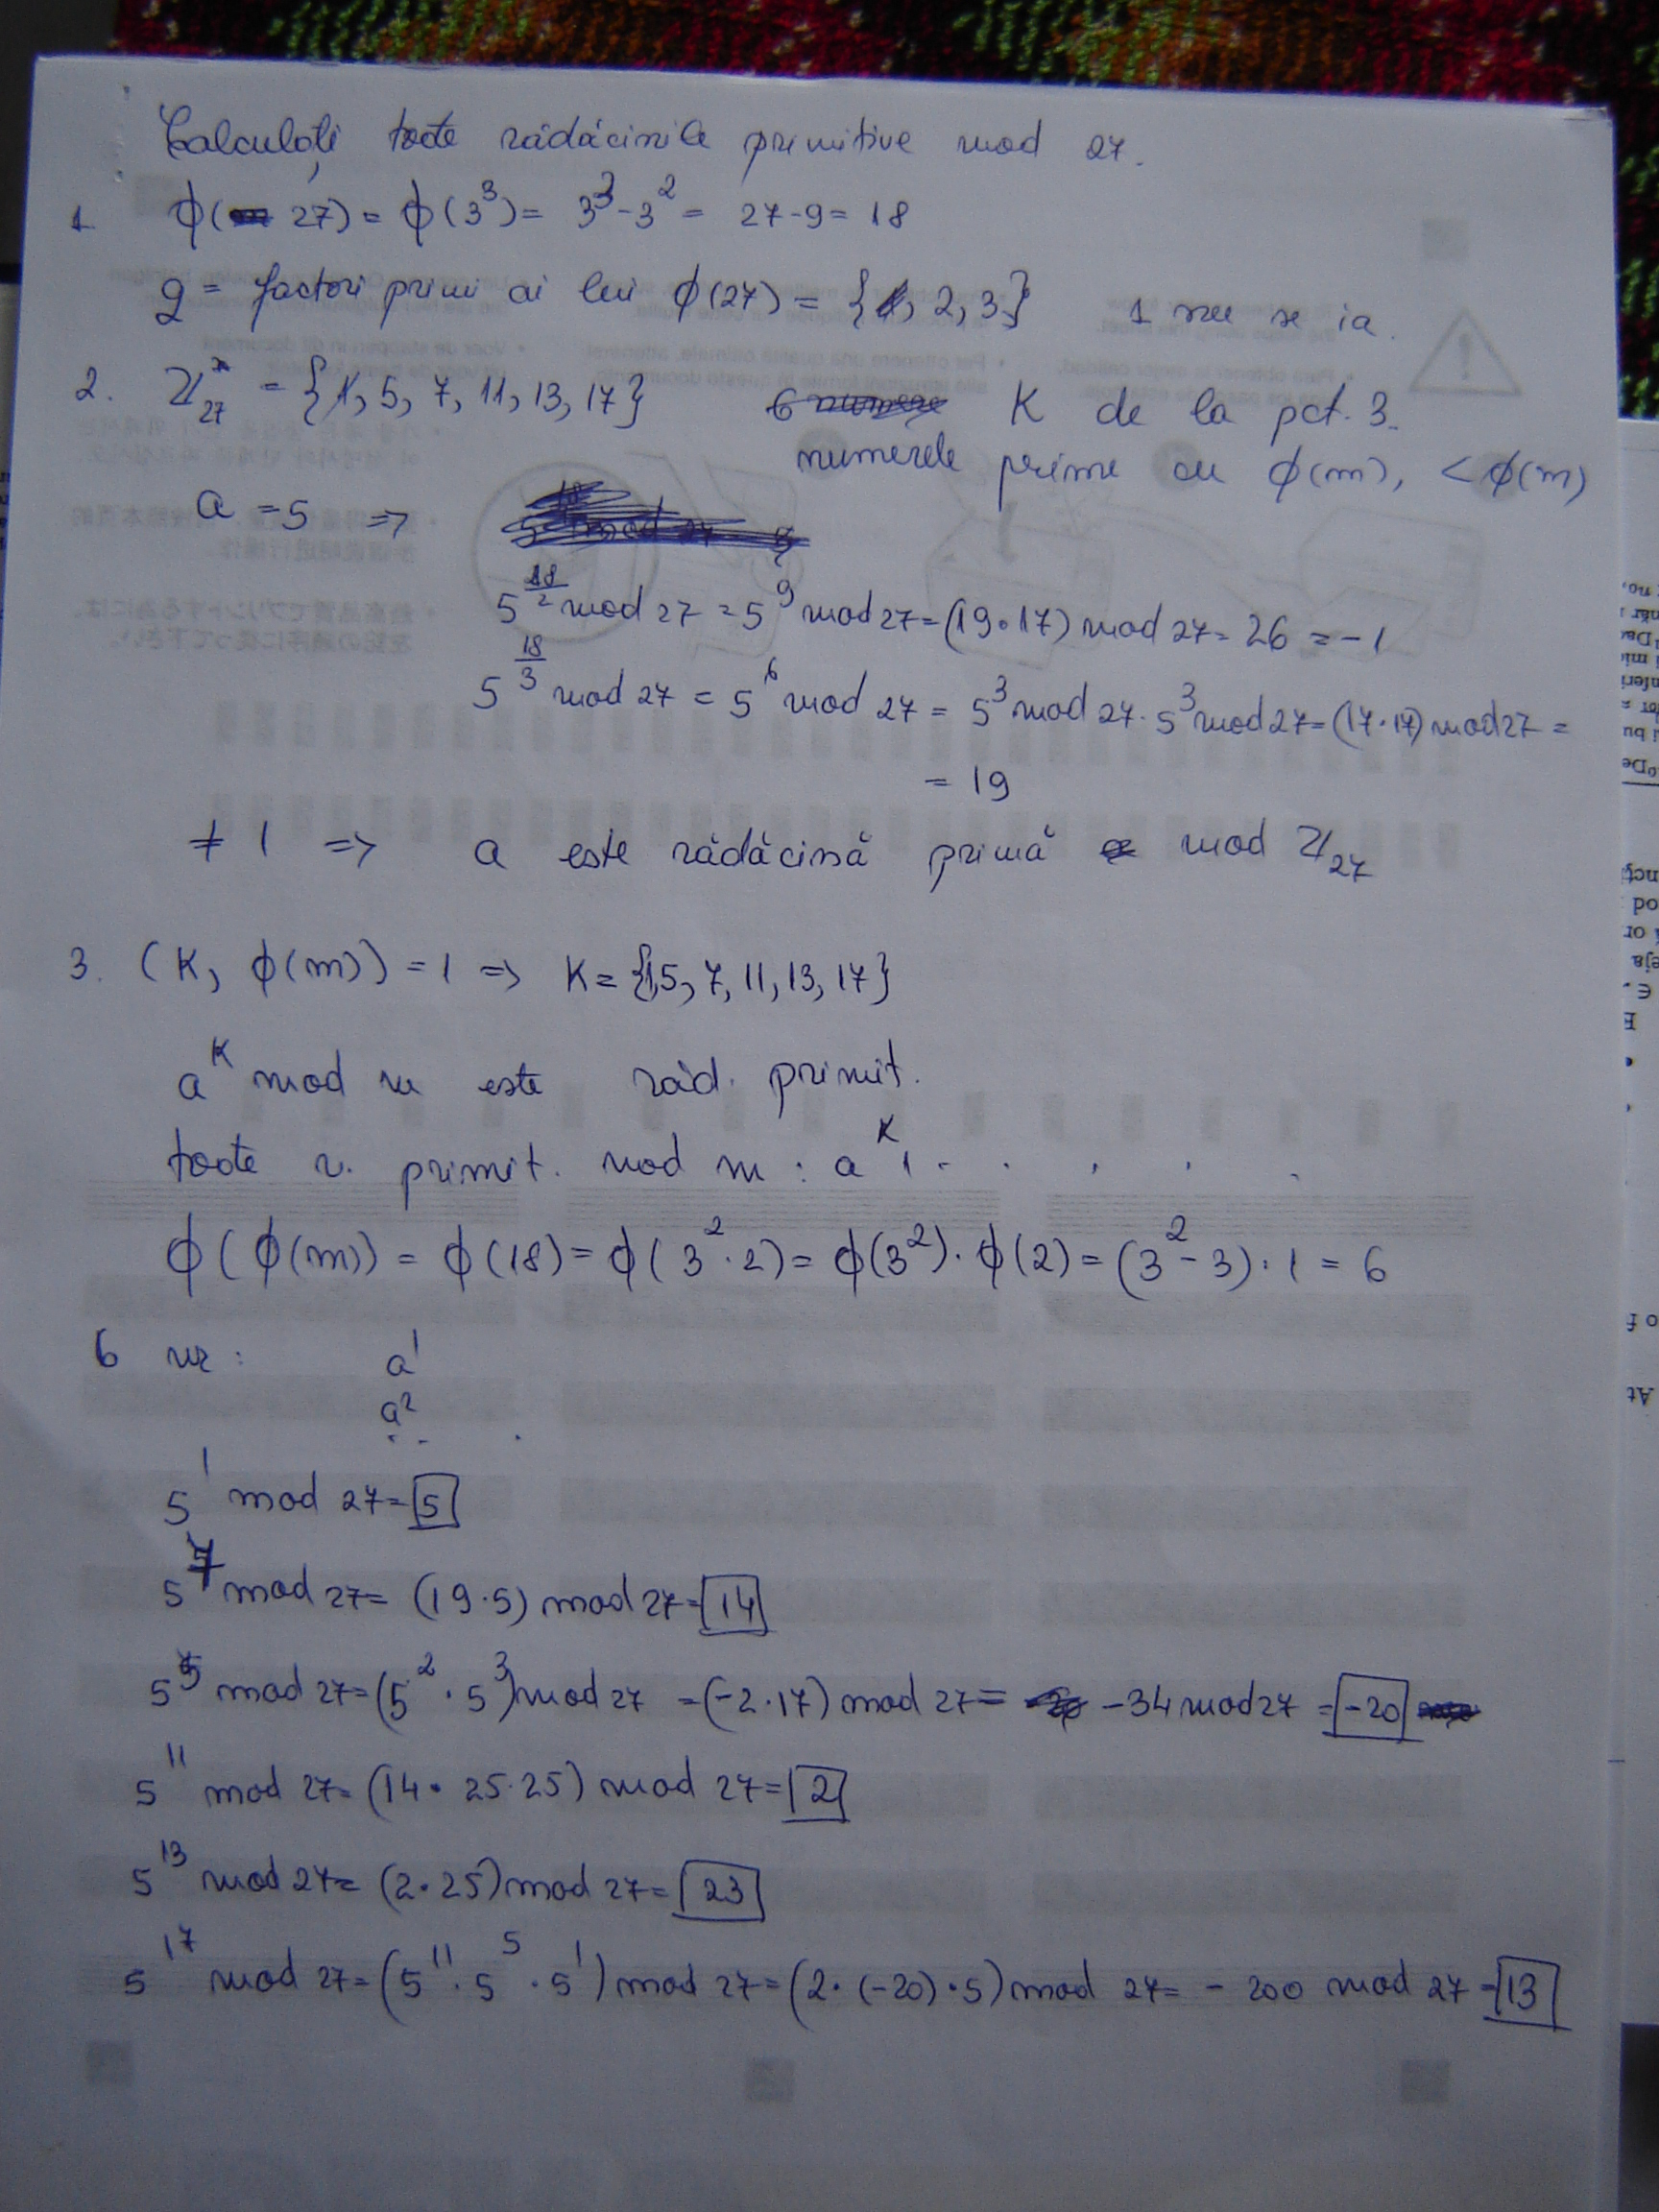 Calculați toate rădăcinile primitive mod 27.
1. ϕ(27) = ϕ(3³) = 3³-3² = 27-9 = 18
q = factori primi ai lui ϕ(27) = {1, 2, 3} 1 nu se ia.
2. Z*₂₇ = {1, 5, 7, 11, 13, 17} 6 numere K de la pct. 3.
numerele prime cu ϕ(m), < ϕ(m)
a = 5 =>
5^(18/2) mod 27 = 5⁹ mod 27 = (19·17) mod 27 = 26 = -1
5^(18/3) mod 27 = 5⁶ mod 27 = 5³ mod 27 · 5³ mod 27 = (17·17) mod 27 =
= 19
≠ 1 => a este rădăcină primă mod Z₂₇
3. (K, ϕ(m)) = 1 => K = {1,5, 7, 11, 13, 17}
a^K mod m este răd. primit.
toate r. primit. mod m : a^K, . . . . .
ϕ(ϕ(m)) = ϕ(18) = ϕ(3²·2) = ϕ(3²)·ϕ(2) = (3²-3)·1 = 6
6 nr: a¹
a²
. . .
5¹ mod 27 = 5
5⁷ mod 27 = (19·5) mod 27 = 14
5⁵ mod 27 = (5²·5³) mod 27 = (-2·17) mod 27 = -34 mod 27 = -20
5¹¹ mod 27 = (14·25·25) mod 27 = 2
5¹³ mod 27 = (2·25) mod 27 = 23
5¹⁷ mod 27 = (5¹¹·5⁵·5¹) mod 27 = (2·(-20)·5) mod 27 = -200 mod 27 = 13